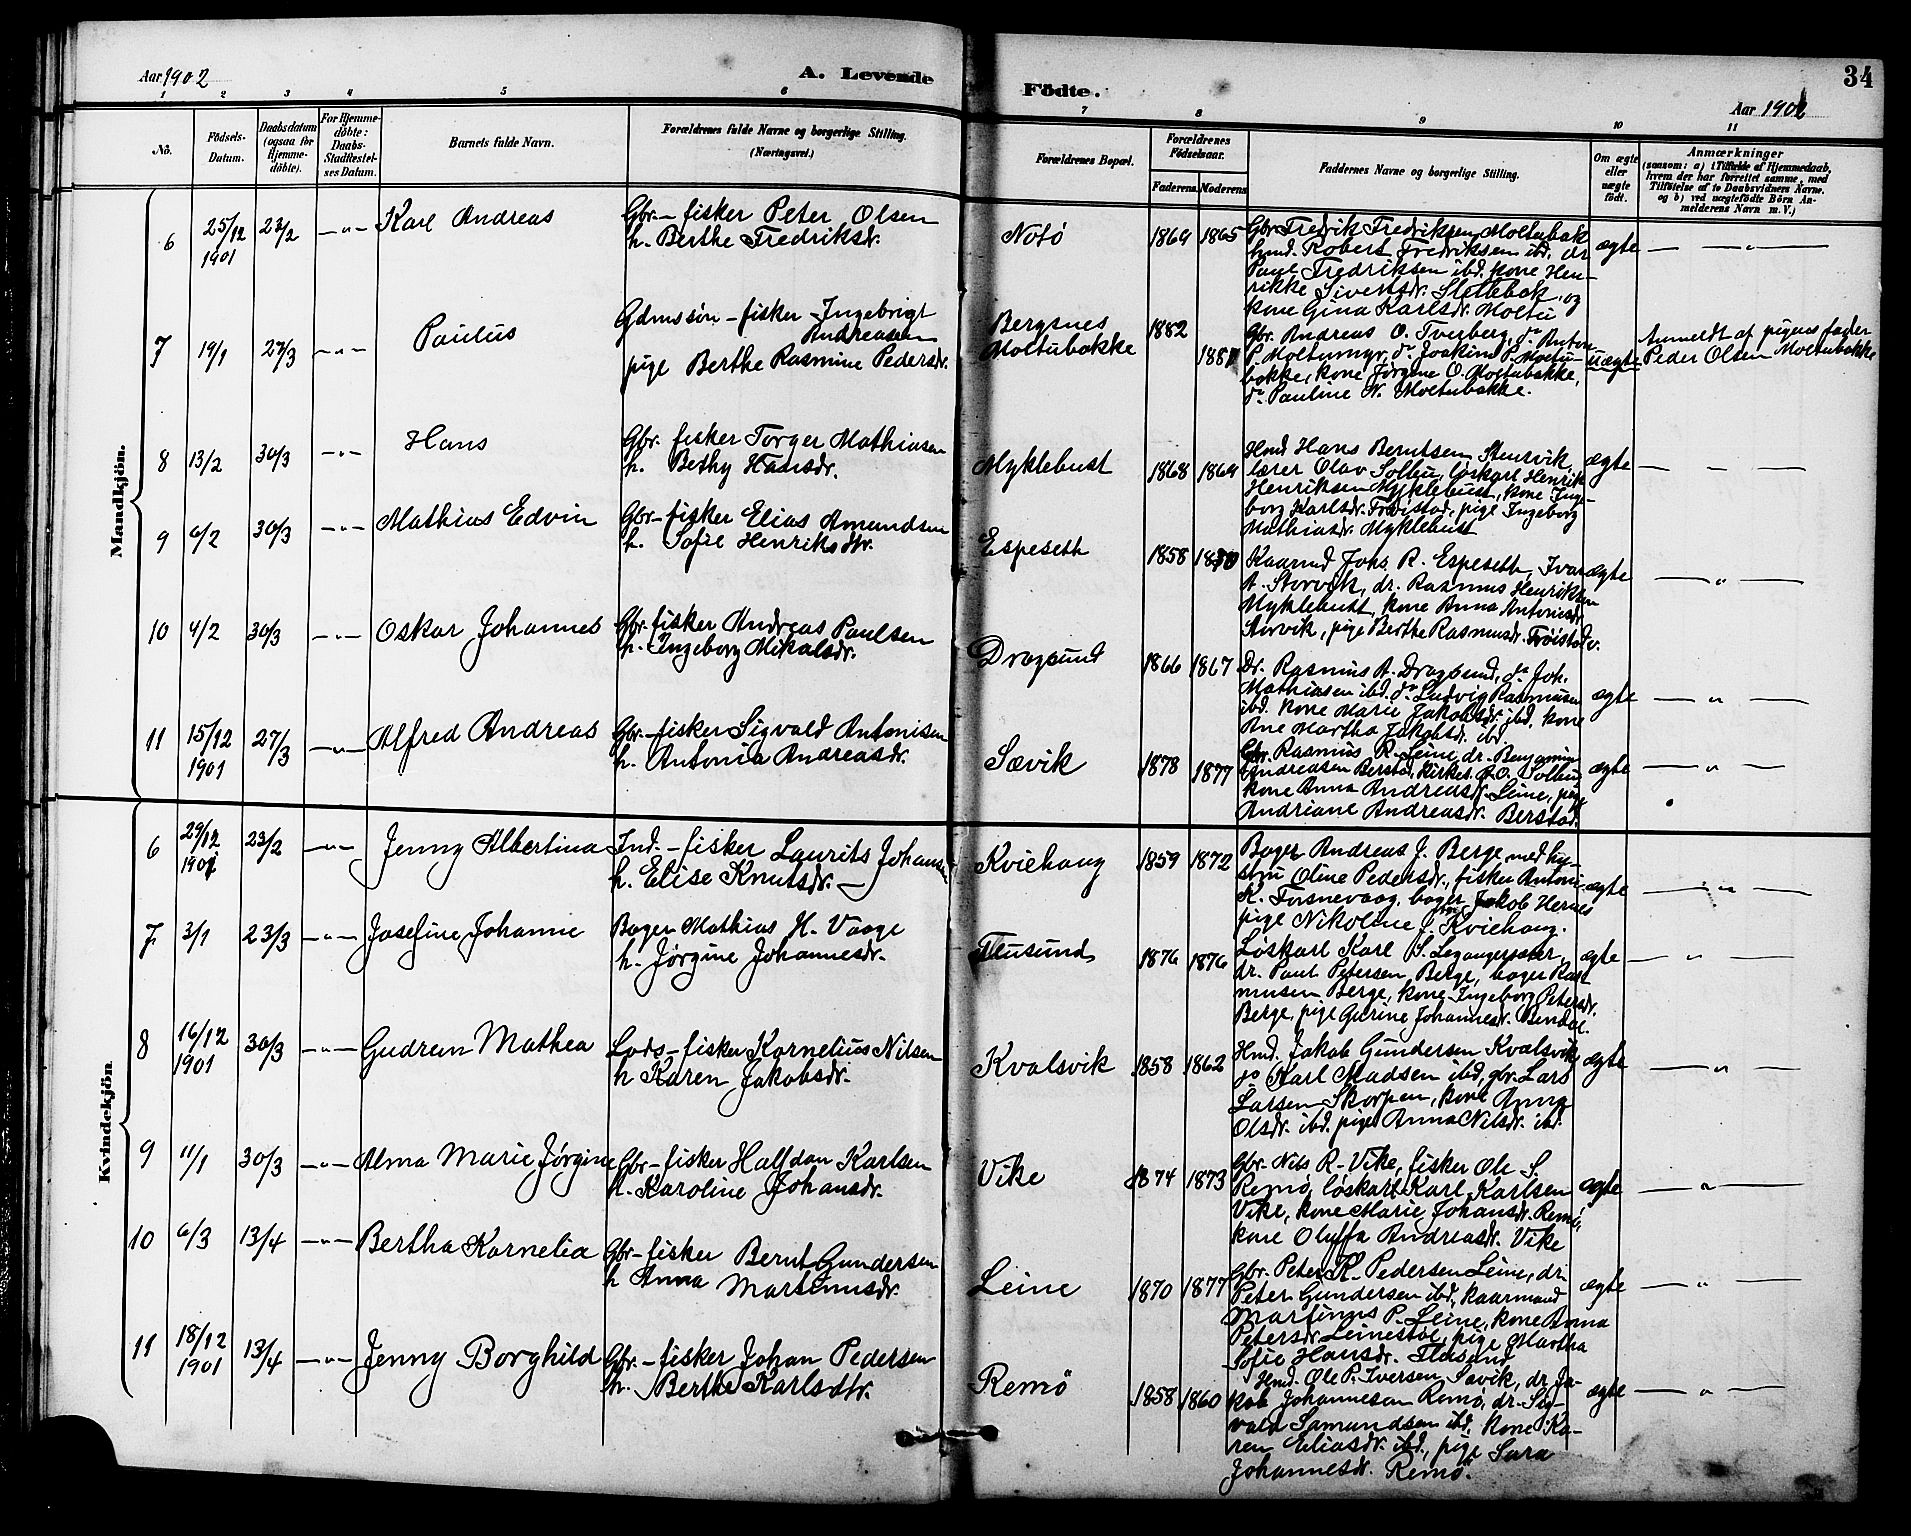 Aar 1902
A. Levende
Födte.
34
Aar 1902
1 2 3 4 5 6 7 8 9 10 11
No.
Födsels-
Datum.
Daabsdatum
(ogsaa for
Hjemme-
döbte).
For Hjemme-
döbte:
Daabs-
Stadfæstel-
ses Datum.
Barnets fulde Navn.
Forældrenes fulde Navne og borgerlige Stilling.
(Næringsvei.)
Forældrenes Bopæl.
Forældrenes
Födselsaar.
Faderens. Moderens.
Faddernes Navne og borgerlige Stilling.
Om ægte
eller
uægte
født.
Anmærkninger
(saasom: a) i Tilfælde af Hjemmedaab,
hvem der har forrettet samme, med
Tilföielse af to Daabsvidners Navne.
og b) ved uægtefödte Börn An-
melderens Navn m.V.)
Mandkjön.
6 25/12 1901 23/2 —"— Karl Andreas
Gbr.- fisker Peter Olsen
h. Berthe Fredriksdr.
Notö 1869 1865
Gbr. Fredrik Fredriksen Moltubak
hmd. Robert Fredriksen ibd. dr
Paul Fredriksen ibd. kone Hen-
rikke Sivertsdr. Slettebak, og
kone Gina Karlsdr. Moltu
ægte — " —
7 19/1 27/3 —"— Paulus
Gdmssön - fisker Ingebrigt
Andreasen
pige Berthe Rasmine Pedersdr.
Bergsnes
Moltubakke
1882
1881
Gbr. Andreas O. Tverberg, do Anton
P. Moltumyr, do Joakim P. Moltu-
bakke, kone Jørgine O. Moltubakke,
do Pauline N. Moltubakke.
uægte
Anmeldt af pigens fader
Peder Olsen Moltubakke
8 13/2 30/3 —"— Hans
Gbr. fisker Torger Mathiasen
h. Bethy Hansdr.
Myklebust 1868 1869
Hmd Hans Berntsen Stensvik,
lærer Olav Solbu, løskarl Henrik
Henriksen Myklebust, kone Inge-
borg Karlsdr. Frøistad, pige Ingeborg
Mathiasdr. Myklebust
ægte — " —
9 6/2 30/3 —"— Mathias Edvin
Gbr.- fisker Elias Amundsen
h. Sofie Henriksdtr.
Espeseth 1858 1870
Kaarmd Johs R. Espeseth, Ivar
A. Storvik, dr. Rasmus Henriksen
Myklebust, kone Anna Antonisdr
Storvik, pige Berthe Rasmusdr. Frøistadv.
ægte — " —
10 4/2 30/3 —"— Oskar Johannes
Gbr. fisker Andreas Paulsen
h. Ingeborg Mikalsdr.
Dragsund 1866 1867
Dr. Rasmus A. Dragsund, do Joh.
Mathiasen ibd. do Ludvig Rasmusen
ibd. kone Marie Jakobsdr. ibd. kone
Ane Martha Jakobsdr. ibd
ægte — " —
11 15/12 1901 27/3 —"— Alfred Andreas
Gbr.- fisker Sigvald Antonisen
h. Antonia Andreasdr.
Sævik 1878 1877
Gbr. Rasmus R. Leine, dr. Benjamin
Andreasen Berstad, kirkes. P. O. Solbu
kone Anna Andreasdr. Leine, pige
Andriane Andreasdr. Berstad.
ægte — " —
Kvindekjön
6 29/12 1901 23/2 —"— Jenny Albertina
Ind.- fisker Laurits Johansen
h. Elise Knutsdr.
Kviehaug 1859 1872
Bager Andreas J. Berge, med hu-
stru Oline Pedersdr., fisker Antoni
K. Torsnevaag, bager Jakob Hernes
pige Nikoline J. Kviehaug.
ægte — " —
7 3/1 23/3 —"— Josefine Johanne
Bager Mathias H. Vaage
h. Jørgine Johannesdr.
Flusund 1876 1876
Løskarl Karl S. Legangersæter,
dr. Paul Petersen Berge, bager Ras-
musen Berge, kone Ingeborg Petersdr.
Berge, pige Gurine Johannesdr. Bendal.
ægte — " —
8 16/12 1901 30/3 —"— Gudrun Mathea
Lods- fisker Kornelius Nilsen
h Karen Jakobsdr.
Kvalsvik 1858 1862
Hmd. Jakob Gundersen Kvalsvik
do Karl Madsen ibd, gbr. Lars
Larsen Skorpen, kone Anna
Olsdr. ibd. pige Anna Nilsdr. ibd.
ægte — " —
9 11/1 30/3 —"— Alma Marie Jørgine
Gbr.- fisker Halfdan Karlsen
h. Karoline Johansdr.
Vike 1874 1873
Gbr. Nils R. Vike, fisker Ole S.
Remö, løskarl Karl Karlsen
Vike, kone Marie Johansdr. Remö,
kone Oluffa Andreasdr. Vike
ægte — " —
10 6/3 13/4 —"— Bertha Kornelia
Gbr- fisker Bernt Gundersen
h Anna Martinusdr.
Leine 1870 1877
Gbr. Peter K. Pedersen Leine, dr.
Peter Gundersen ibd., kaarmand
Martinus P. Leine, kone Anna
Petersdr. Leinestøl, pige Martha
Sofie Hansdr. Flusund
ægte — " —
11 18/12 1901 13/4 —"— Jenny Borghild
Gbr.- fisker Johan Pedersen
h. Berthe Karlsdtr.
Remö 1858 1860
Hmd. Ole P. Iversen Savik, dr. Ja-
kob Johannesen Remö, dr. Sig-
vald Samundsen ibd, kone Ka-
ren Eliasdr. ibd., pige Sara
Johannesdr. Remö.
ægte — " —